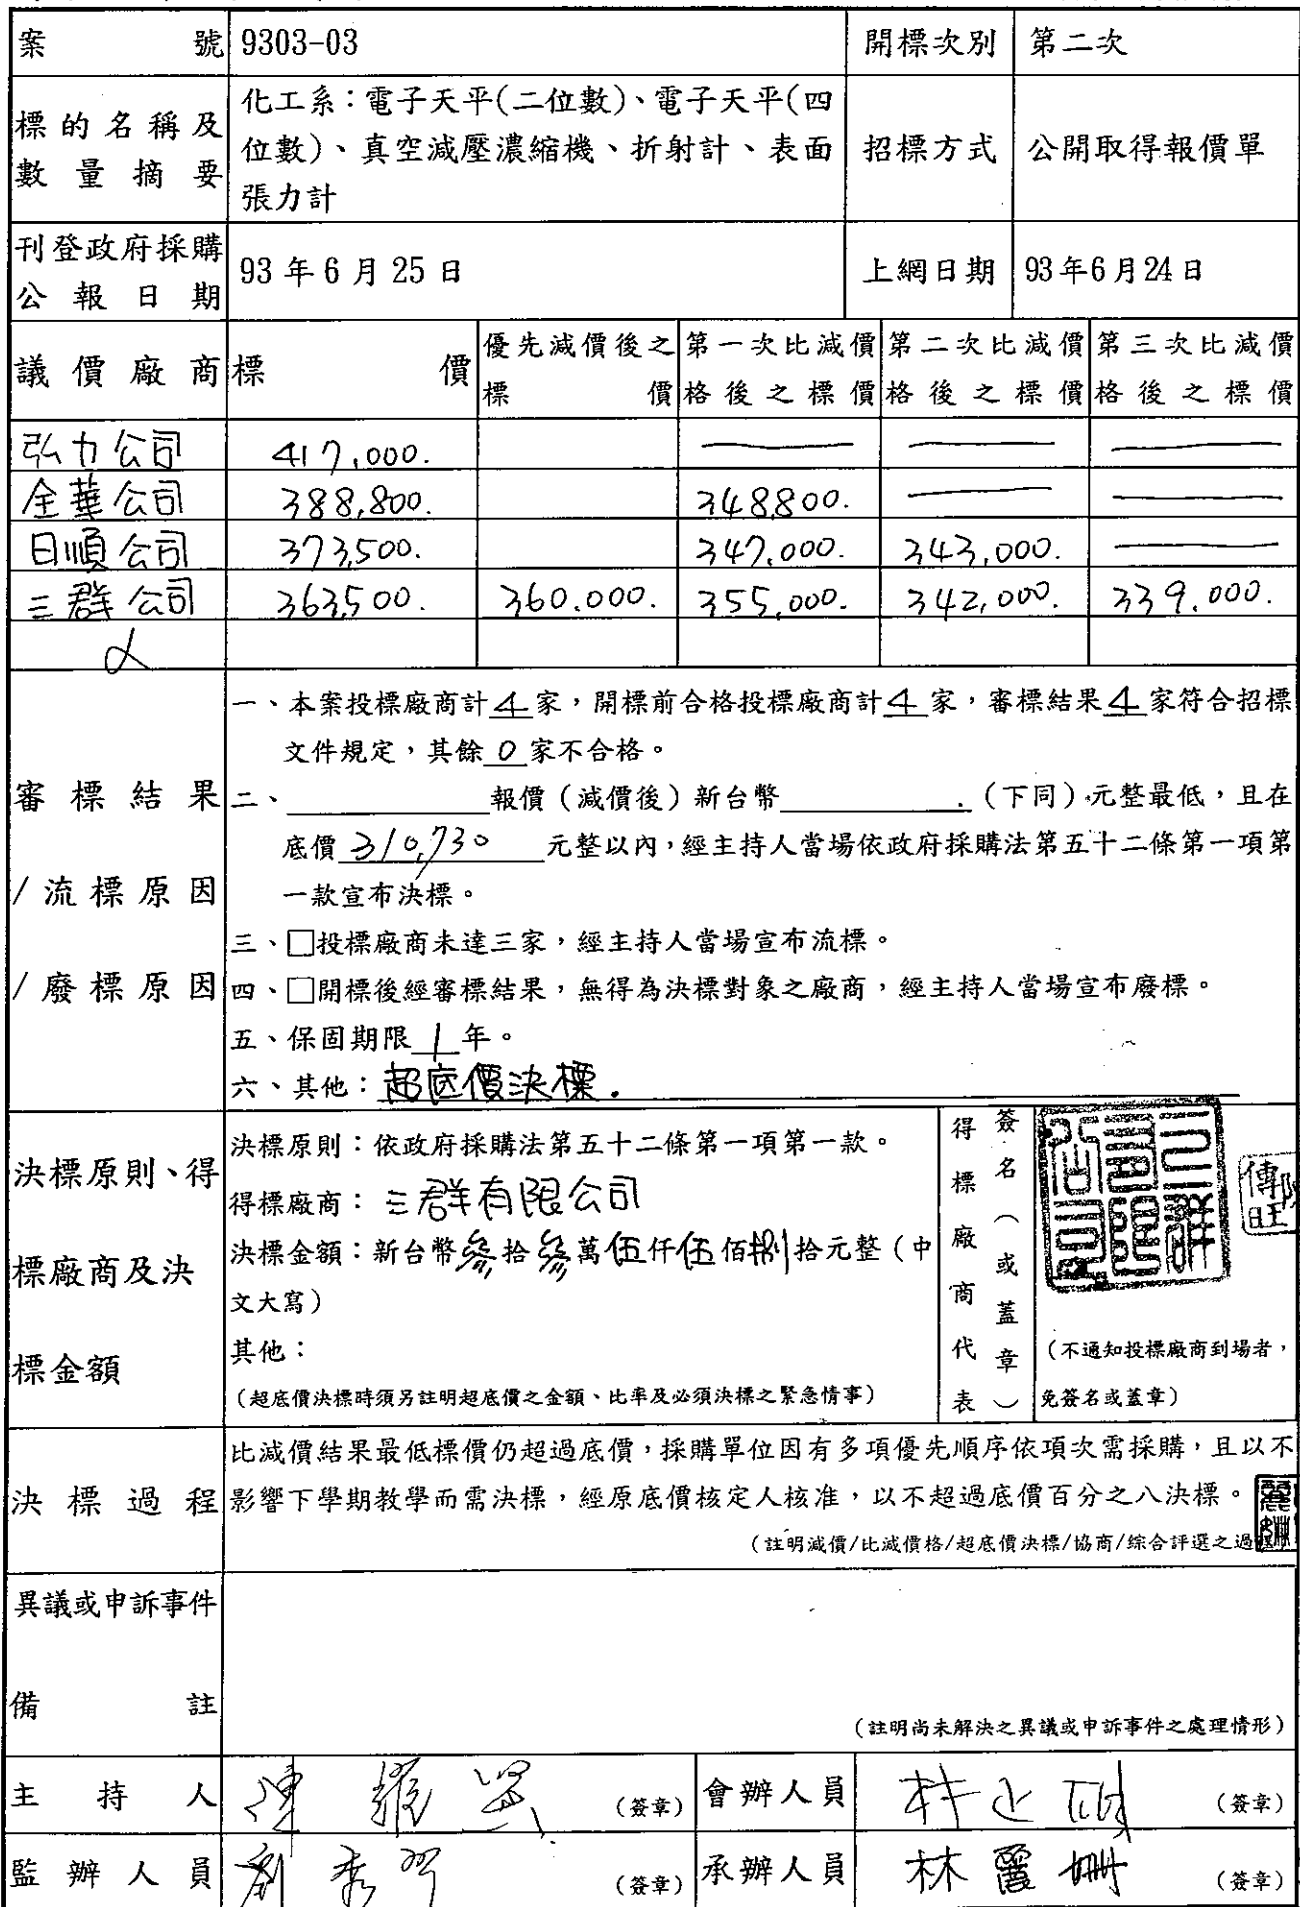 案號 9303-03 開標次別 第二次
標的名稱及數量摘要 化工系：電子天平(二位數)、電子天平(四
位數)、真空減壓濃縮機、折射計、表面
張力計
招標方式 公開取得報價單
刊登政府採購公報日期 93年6月25日 上網日期 93年6月24日
議價廠商 標價 優先減價後之標價 第一次比減價格後之標價 第二次比減價格後之標價 第三次比減價格後之標價
弘力公司 417,000.
全華公司 388,800. 348,800.
日順公司 373,500. 347,000. 343,000.
三群公司 363,500. 360,000. 355,000. 342,000. 339,000.
審標結果
/流標原因
/廢標原因
一、本案投標廠商計4家，開標前合格投標廠商計4家，審標結果4家符合招標
文件規定，其餘0家不合格。
二、 報價（減價後）新台幣 .（下同）元整最低，且在
底價310,730 元整以內，經主持人當場依政府採購法第五十二條第一項第
一款宣布決標。
三、□投標廠商未達三家，經主持人當場宣布流標。
四、□開標後經審標結果，無得為決標對象之廠商，經主持人當場宣布廢標。
五、保固期限1年。
六、其他：超底價決標.
決標原則、得
標廠商及決
標金額
決標原則：依政府採購法第五十二條第一項第一款。
得標廠商：三群有限公司
決標金額：新台幣參拾參萬伍仟伍佰捌拾元整（中
文大寫）
其他：
（超底價決標時須另註明超底價之金額、比率及必須決標之緊急情事）
得標廠商代表
簽名（或蓋章）
（不通知投標廠商到場者，
免簽名或蓋章）
決標過程
比減價結果最低標價仍超過底價，採購單位因有多項優先順序依項次需採購，且以不
影響下學期教學而需決標，經原底價核定人核准，以不超過底價百分之八決標。
（註明減價/比減價格/超底價決標/協商/綜合評選之過
異議或申訴事件
備註
（註明尚未解決之異議或申訴事件之處理情形）
主持人 （簽章） 會辦人員 （簽章）
監辦人員 （簽章） 承辦人員 林麗珊 （簽章）